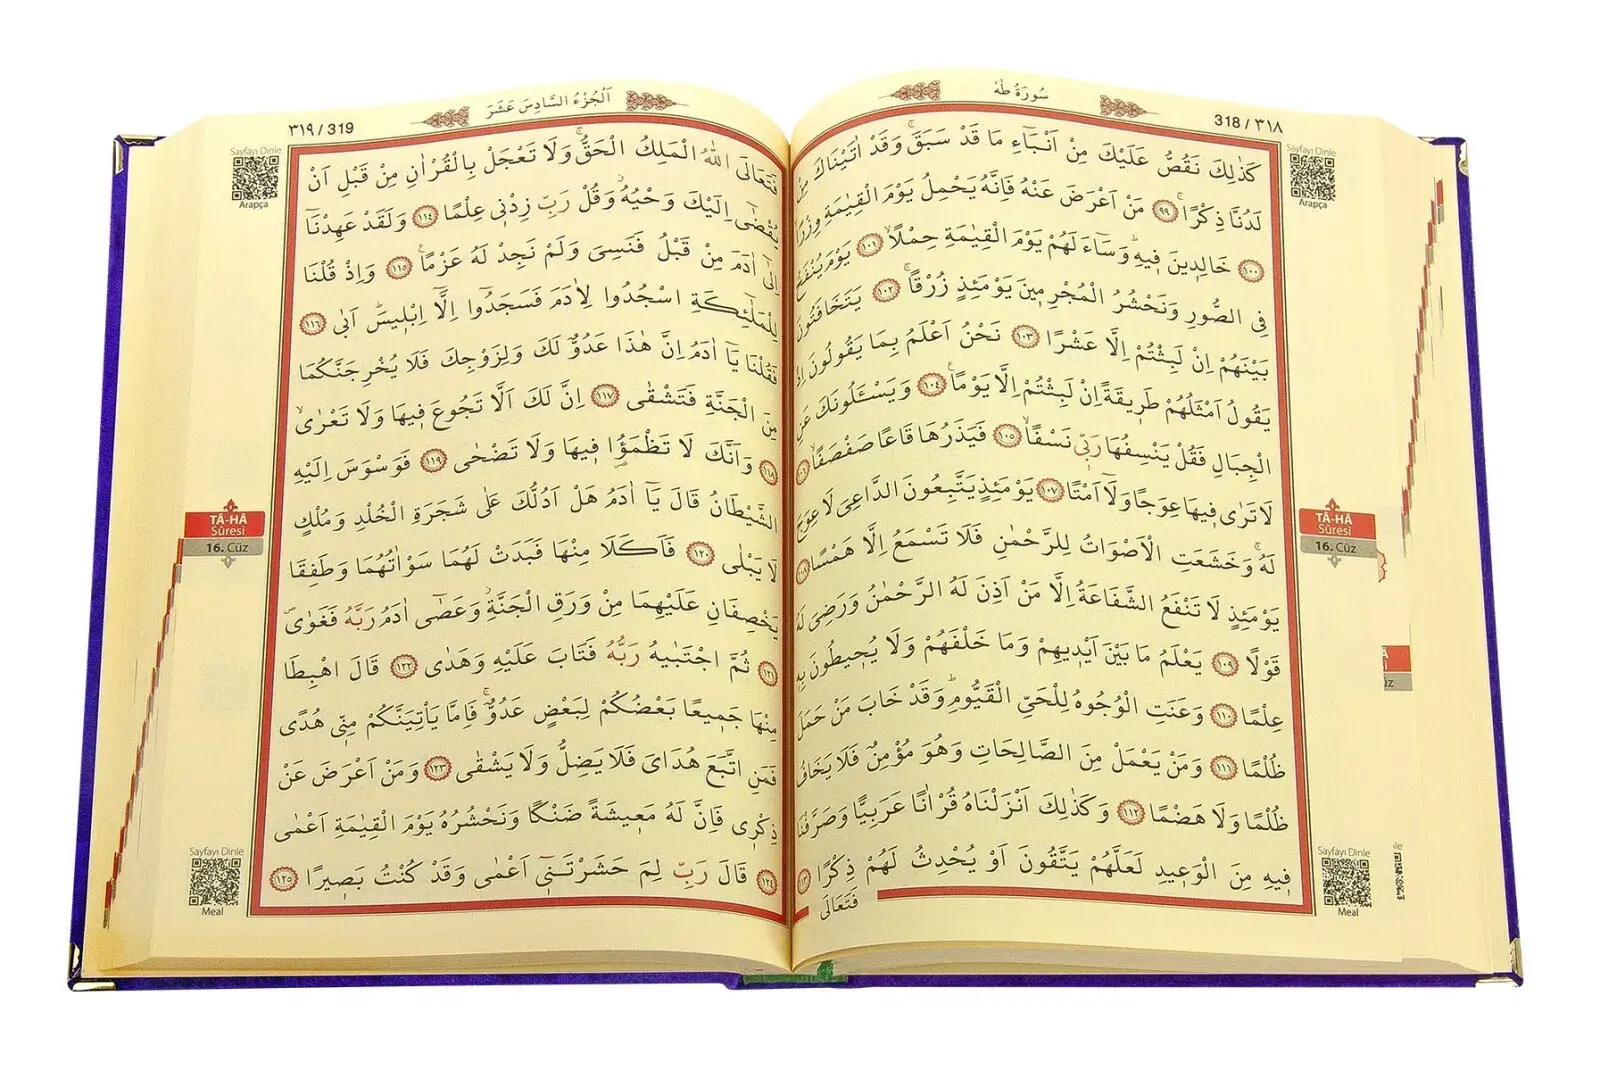 سُورَةُ طٰهٰ
318 / ٣١٨
Sayfayı Dinle
Arapça
كَذٰلِكَ نَقُصُّ عَلَيْكَ مِنْ اَنْبَٓاءِ مَا قَدْ سَبَقَۚ وَقَدْ اٰتَيْنَاكَ مِنْ
لَدُنَّا ذِكْرًاۚ ﴿٩٩﴾ مَنْ اَعْرَضَ عَنْهُ فَاِنَّهُ يَحْمِلُ يَوْمَ الْقِيٰمَةِ وِزْرًا
﴿١٠٠﴾ خَالِدِينَ فِيهِۜ وَسَٓاءَ لَهُمْ يَوْمَ الْقِيٰمَةِ حِمْلًاۙ ﴿١٠١﴾ يَوْمَ يُنْفَخُ
فِي الصُّورِ وَنَحْشُرُ الْمُجْرِمِينَ يَوْمَئِذٍ زُرْقًاۚ ﴿١٠٢﴾ يَتَخَافَتُونَ
بَيْنَهُمْ اِنْ لَبِثْتُمْ اِلَّا عَشْرًا ﴿١٠٣﴾ نَحْنُ اَعْلَمُ بِمَا يَقُولُونَ اِذْ
يَقُولُ اَمْثَلُهُمْ طَرِيقَةً اِنْ لَبِثْتُمْ اِلَّا يَوْمًا۟ ﴿١٠٤﴾ وَيَسْـَٔلُونَكَ عَنِ
الْجِبَالِ فَقُلْ يَنْسِفُهَا رَبِّي نَسْفًاۙ ﴿١٠٥﴾ فَيَذَرُهَا قَاعًا صَفْصَفًاۙ ﴿١٠٦﴾
لَا تَرٰى فِيهَا عِوَجًا وَلَٓا اَمْتًا ﴿١٠٧﴾ يَوْمَئِذٍ يَتَّبِعُونَ الدَّاعِيَ لَا عِوَجَ
لَهُۚ وَخَشَعَتِ الْاَصْوَاتُ لِلرَّحْمٰنِ فَلَا تَسْمَعُ اِلَّا هَمْسًا ﴿١٠٨﴾
يَوْمَئِذٍ لَا تَنْفَعُ الشَّفَاعَةُ اِلَّا مَنْ اَذِنَ لَهُ الرَّحْمٰنُ وَرَضِيَ لَهُ
قَوْلًا ﴿١٠٩﴾ يَعْلَمُ مَا بَيْنَ اَيْدِيهِمْ وَمَا خَلْفَهُمْ وَلَا يُحِيطُونَ بِهِ
عِلْمًا ﴿١١٠﴾ وَعَنَتِ الْوُجُوهُ لِلْحَيِّ الْقَيُّومِۜ وَقَدْ خَابَ مَنْ حَمَلَ
ظُلْمًا ﴿١١١﴾ وَمَنْ يَعْمَلْ مِنَ الصَّالِحَاتِ وَهُوَ مُؤْمِنٌ فَلَا يَخَافُ
ظُلْمًا وَلَا هَضْمًا ﴿١١٢﴾ وَكَذٰلِكَ اَنْزَلْنَاهُ قُرْاٰنًا عَرَبِيًّا وَصَرَّفْنَا
فِيهِ مِنَ الْوَعِيدِ لَعَلَّهُمْ يَتَّقُونَ اَوْ يُحْدِثُ لَهُمْ ذِكْرًا ﴿١١٣﴾
فَتَعَالَى
TÂ-HÂ
Sûresi
16. Cüz
Sayfayı Dinle
Meal
اَلْجُزْءُ السَّادِسَ عَشَرَ
٣١٩ / 319
Sayfayı Dinle
Arapça
فَتَعَالَى اللّٰهُ الْمَلِكُ الْحَقُّۚ وَلَا تَعْجَلْ بِالْقُرْاٰنِ مِنْ قَبْلِ اَنْ
يُقْضٰٓى اِلَيْكَ وَحْيُهُۘ وَقُلْ رَبِّ زِدْنِي عِلْمًا ﴿١١٤﴾ وَلَقَدْ عَهِدْنَٓا
اِلٰٓى اٰدَمَ مِنْ قَبْلُ فَنَسِيَ وَلَمْ نَجِدْ لَهُ عَزْمًا۟ ﴿١١٥﴾ وَاِذْ قُلْنَا
لِلْمَلٰٓئِكَةِ اسْجُدُوا لِاٰدَمَ فَسَجَدُٓوا اِلَّٓا اِبْلِيسَۜ اَبٰى ﴿١١٦﴾
فَقُلْنَا يَٓا اٰدَمُ اِنَّ هٰذَا عَدُوٌّ لَكَ وَلِزَوْجِكَ فَلَا يُخْرِجَنَّكُمَا
مِنَ الْجَنَّةِ فَتَشْقٰى ﴿١١٧﴾ اِنَّ لَكَ اَلَّا تَجُوعَ فِيهَا وَلَا تَعْرٰىۙ
﴿١١٨﴾ وَاَنَّكَ لَا تَظْمَؤُ۬ا فِيهَا وَلَا تَضْحٰى ﴿١١٩﴾ فَوَسْوَسَ اِلَيْهِ
الشَّيْطَانُ قَالَ يَٓا اٰدَمُ هَلْ اَدُلُّكَ عَلٰى شَجَرَةِ الْخُلْدِ وَمُلْكٍ
لَا يَبْلٰى ﴿١٢٠﴾ فَاَكَلَا مِنْهَا فَبَدَتْ لَهُمَا سَوْاٰتُهُمَا وَطَفِقَا
يَخْصِفَانِ عَلَيْهِمَا مِنْ وَرَقِ الْجَنَّةِۘ وَعَصٰٓى اٰدَمُ رَبَّهُ فَغَوٰىۖ
﴿١٢١﴾ ثُمَّ اجْتَبٰيهُ رَبُّهُ فَتَابَ عَلَيْهِ وَهَدٰى ﴿١٢٢﴾ قَالَ اهْبِطَا
مِنْهَا جَمِيعًا بَعْضُكُمْ لِبَعْضٍ عَدُوٌّۚ فَاِمَّا يَأْتِيَنَّكُمْ مِنِّي هُدًى
فَمَنِ اتَّبَعَ هُدَايَ فَلَا يَضِلُّ وَلَا يَشْقٰى ﴿١٢٣﴾ وَمَنْ اَعْرَضَ عَنْ
ذِكْرِي فَاِنَّ لَهُ مَعِيشَةً ضَنْكًا وَنَحْشُرُهُ يَوْمَ الْقِيٰمَةِ اَعْمٰى
﴿١٢٤﴾ قَالَ رَبِّ لِمَ حَشَرْتَنِٓي اَعْمٰى وَقَدْ كُنْتُ بَصِيرًا ﴿١٢٥﴾
TÂ-HÂ
Sûresi
16. Cüz
Sayfayı Dinle
Meal